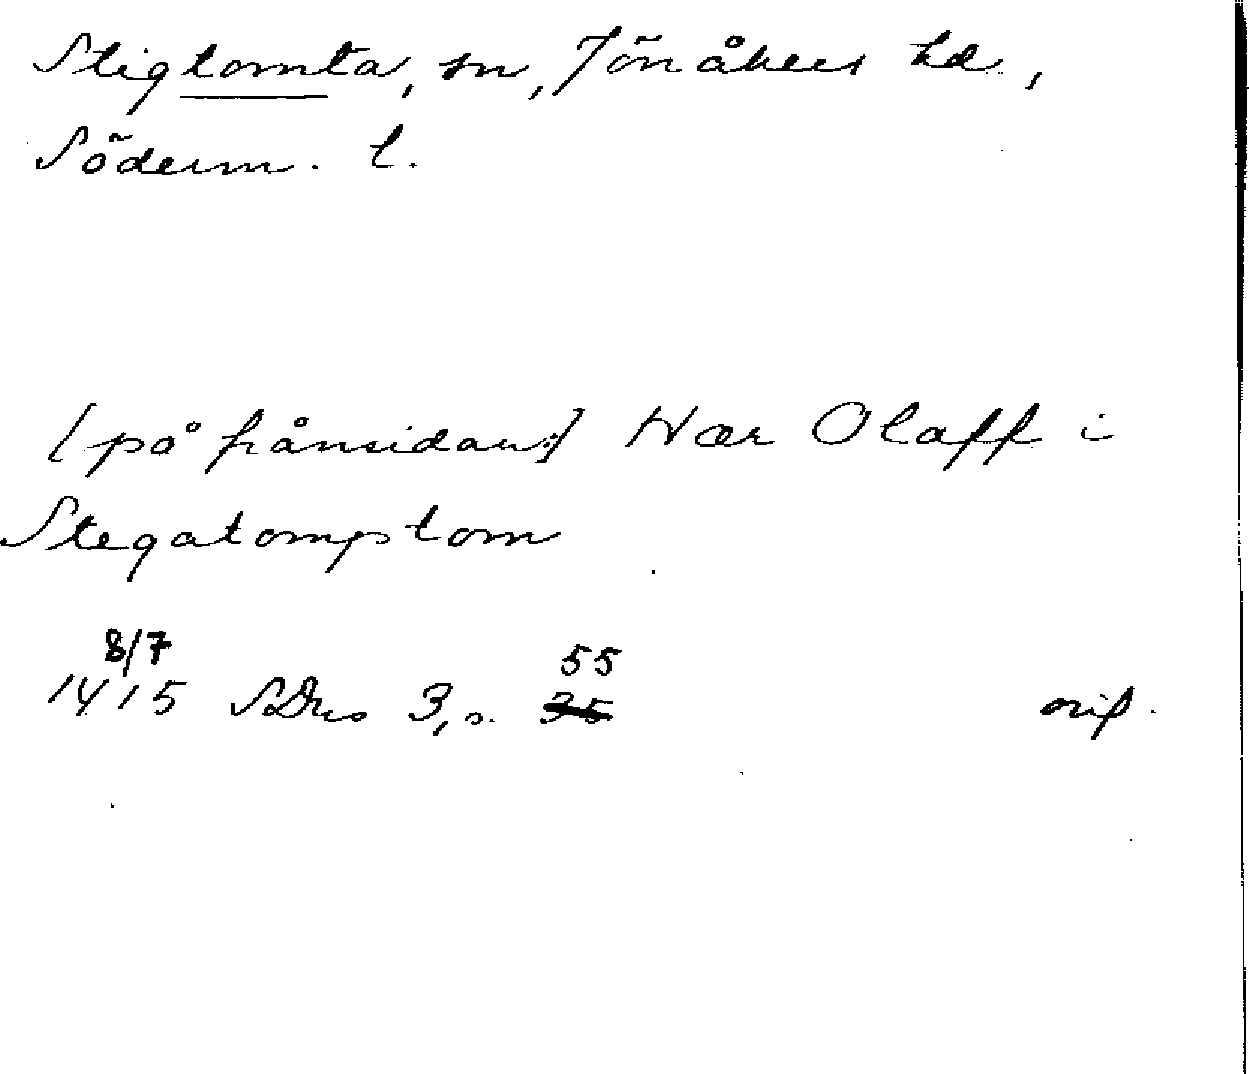 Stigtomta, sn, Jönåkers hd,
Söderm. l.
[på frånsidan:] Hær Olaff i
Stegatomptom
8/7 55
1415 SDns 3, s. 35 orig.